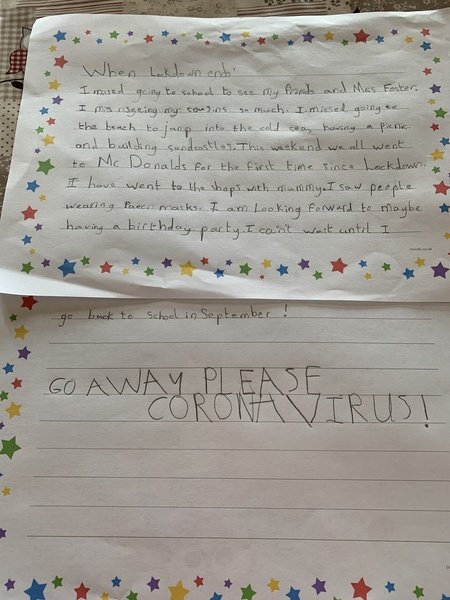 When Lockdown ends'
I missed going to school to see my friends and Miss Foster.
I miss seeing my cousins so much. I missed going to
the beach to jump into the cold sea, having a picnic
and building sandcastles. This weekend we all went
to Mc Donalds for the first time since lockdown.
I have went to the shops with mummy. I saw people
wearing masks. I am looking forward to maybe
having a birthday party. I can't wait until I
go back to school in September!
GO AWAY PLEASE
CORONAVIRUS!